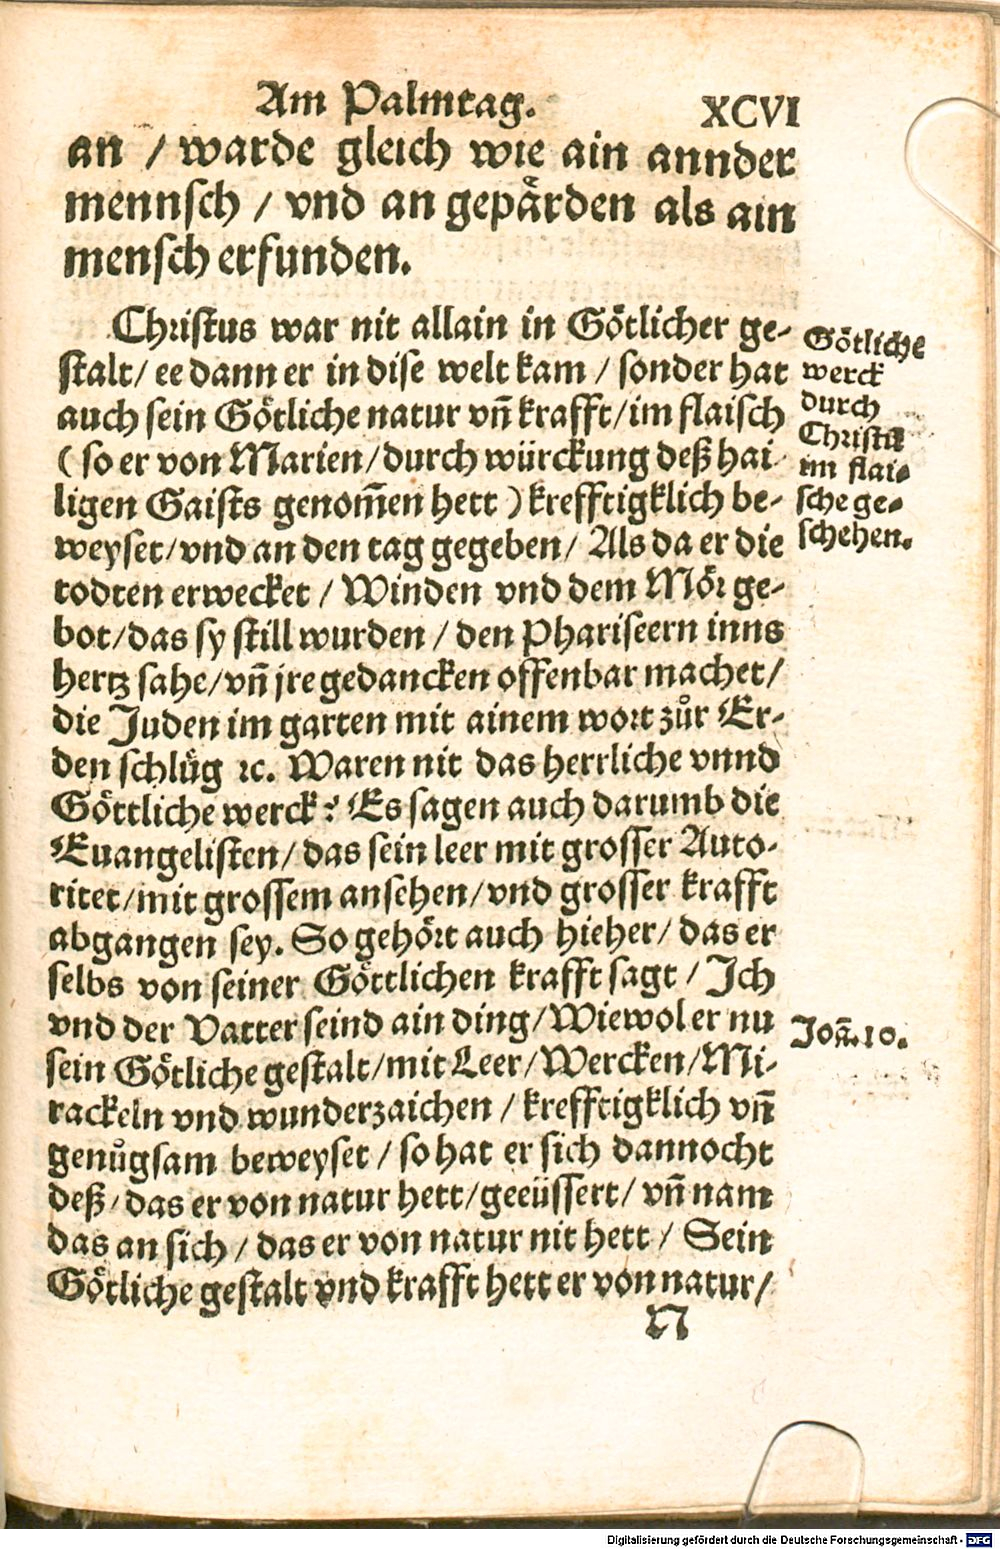 Am Palmtag. XCVI
an / warde gleich wie ain annder
mennsch / vnd an gepaͤrden als ain
mensch erfunden.
Christus war nit allain in Goͤtlicher ge-
stalt / ee dann er in dise welt kam / sonder hat
auch sein Goͤtliche natur vñ krafft / im flaisch
( so er von Marien / durch würckung deß hai-
ligen Gaists genom̃en hett ) krefftigklich be-
weyset / vnd an den tag gegeben / Als da er die
todten erwecket / Winden vnd dem Moͤr ge-
bot / das sy still wurden / den Phariseern inns
hertz sahe / vñ jre gedancken offenbar machet /
die Juden im garten mit ainem wort zuͦr Er-
den schluͤg ꝛc. Waren nit das herrliche vnnd
Goͤttliche werck? Es sagen auch darumb die
Euangelisten / das sein leer mit grosser Auto-
ritet / mit grossem ansehen / vnd grosser krafft
abgangen sey. So gehoͤrt auch hieher / das er
selbs von seiner Goͤttlichen krafft sagt / Ich
vnd der Vatter seind ain ding / Wiewol er nu
sein Goͤtliche gestalt / mit Leer / Wercken / Mi-
rackeln vnd wunderzaichen / krefftigklich vñ
genuͦgsam beweyset / so hat er sich dannocht
deß / das er von natur hett / geeüssert / vñ nam
das an sich / das er von natur nit hett / Sein
Goͤtliche gestalt vnd krafft hett er von natur /
N
Goͤtliche
werck
durch
Christũ
im flai-
sche ge-
schehen.
Joñ. 10.
Digitalisierung gefördert durch die Deutsche Forschungsgemeinschaft - DFG